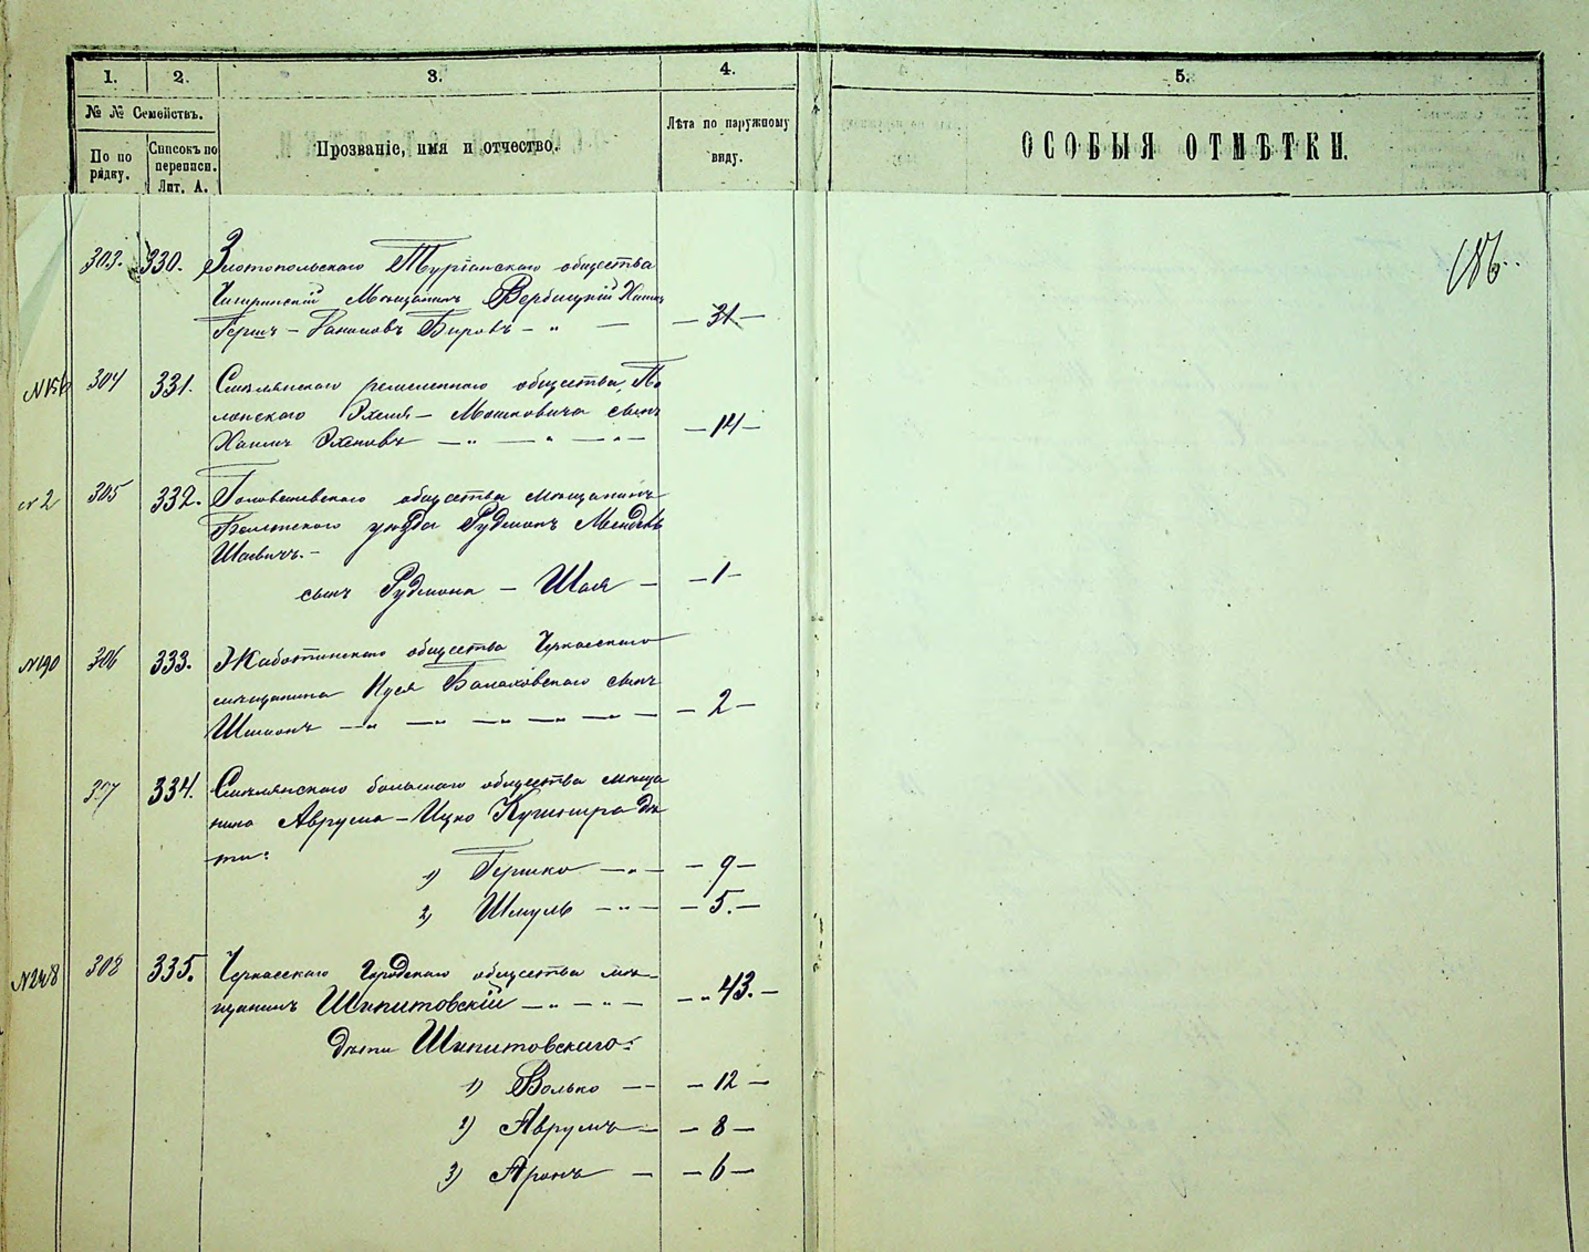 1. 2. 3. 4. 5.
№ № Семействъ.
По по рядку.
Списокъ по переписи. Лит. А.
Прозваніе, имя и отчество.
Лѣта по наружному виду.
ОСОБЫЯ ОТМѢТКИ.
186.
303. 330. Златопольскаго общества
Чигиринскій Мѣщанинъ Вербицкій
Гершъ — — " — — 31 —
304 331. Смѣлянскаго ремесленнаго общества, По
лонскаго — Мошковича сынъ
Хаимъ — " — " — " — — 14 —
№ 2 305 332. общества мѣщанинъ
уѣзда Рудманъ
Шаевичъ. —
сынъ Рудмана — Шая — — 1 —
№ 190 306 333. Жаботинскаго общества Черкасскаго
мѣщанина Нуся Балаховскаго сынъ
Шимонъ — " — " — " — " — " — — 2 —
307 334. Смѣлянскаго большаго общества мѣща
нина Аврума — Ицко Кушнира дѣ
ти:
1) Гершко — " — — 9 —
2) Шмуль — " — — 5. —
308 335. Черкасскаго Городскаго общества мѣ-
щанинъ Шпитовскій — " — " — — " 43. —
дѣти Шпитовскаго:
1) Волько — — — 12 —
2) Аврумъ — — 8 —
3) Аронъ — — 6 —